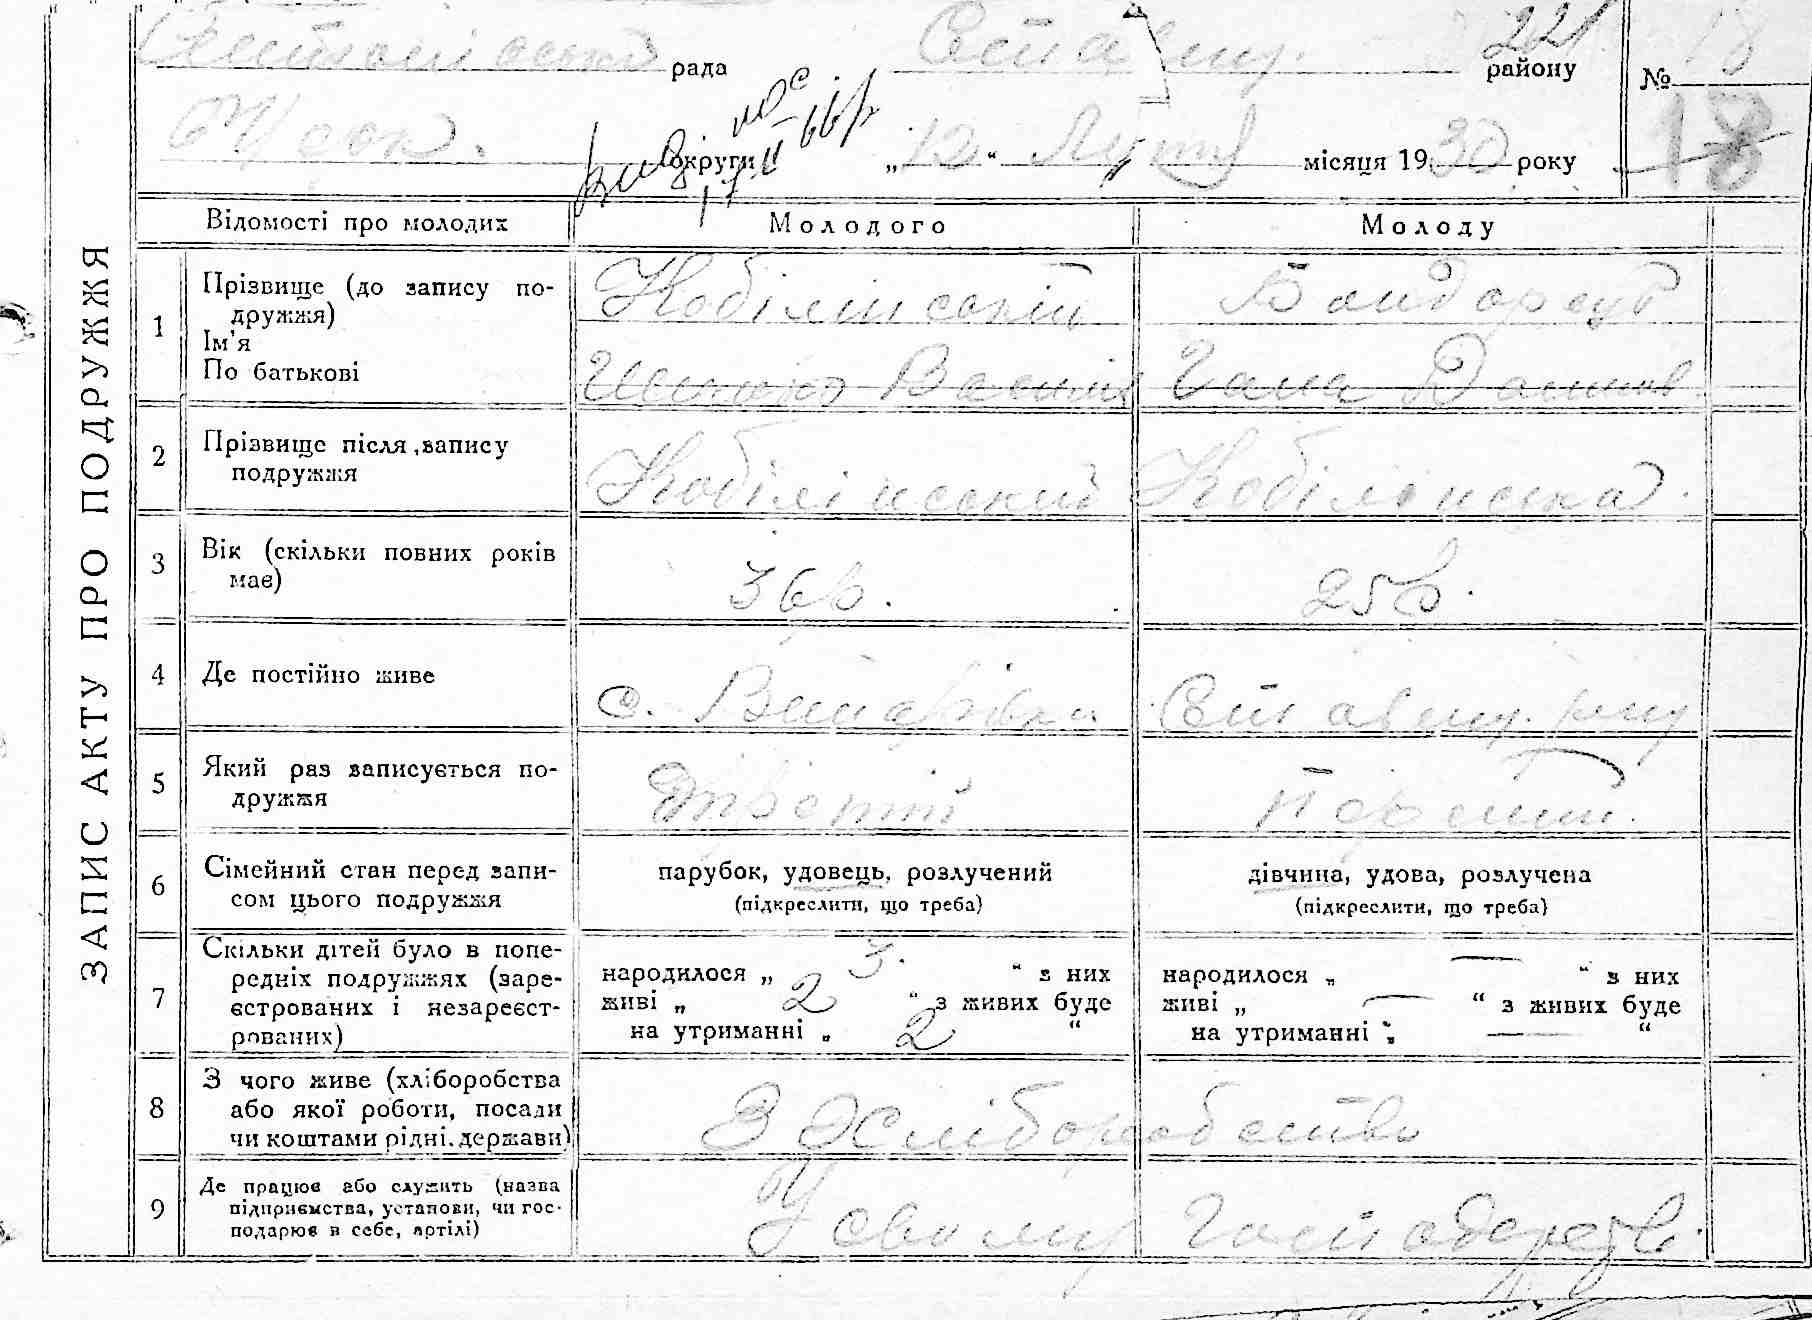 рада Ставищ. району № 18
221
округи „12“ Лютого місяця 1930 року 18
17 II 66р
ЗАПИС АКТУ ПРО ПОДРУЖЖЯ
Відомості про молодих Молодого Молоду
1 Прізвище (до запису по-
дружжя)
Ім'я
По батькові
Кобілінський
Василів
Данилов
2 Прізвище після запису
подружжя
Кобілінський Кобілінська.
3 Вік (скільки повних років
має)
36р. 25р.
4 Де постійно живе
с. Винарівка Ставищ. р-ну
5 Який раз записується по-
дружжя
Третій Перший.
6 Сімейний стан перед запи-
сом цього подружжя
парубок, удовець, розлучений
(підкреслити, що треба)
дівчина, удова, розлучена
(підкреслити, що треба)
7 Скільки дітей було в попе-
редніх подружжях (заре-
єстрованих і незареєст-
рованих)
народилося „ 3. “ з них
живі „ 2 “ з живих буде
на утриманні „ 2 “
народилося „ — “ з них
живі „ — “ з живих буде
на утриманні „ — “
8 З чого живе (хліборобства
або якої роботи, посади
чи коштами рідні, держави)
З Хліборобства
9 Де працює або служить (назва
підприємства, установи, чи гос-
подарює в себе, артілі)
У своему Господарстві.